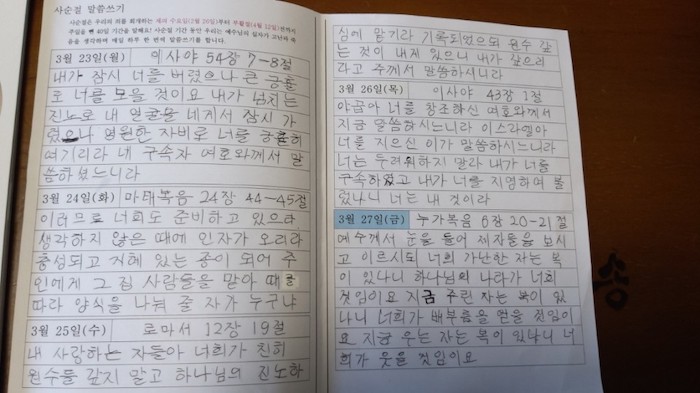 사순절 말씀쓰기
사순절은 우리의 죄를 회개하는 재의 수요일(2월 26일)부터 부활절(4월 12일)전까지
주일을 뺀 40일 기간을 말해요! 사순절 기간 동안 우리는 예수님의 십자가 고난과 죽
음을 생각하며 매일 하루 한 번씩 말씀쓰기를 합니다.
3월 23일(월) 이사야 54장 7-8절
내가 잠시 너를 버렸으나 큰 긍휼
로 너를 모을 것이요 내가 넘치는
진노로 내 얼굴을 네게서 잠시 가
렸으나 영원한 자비로 너를 긍휼히
여기리라 네 구속자 여호와께서 말
씀하셨느니라
3월 24일(화) 마태복음 24장 44-45절
이러므로 너희도 준비하고 있으라
생각하지 않은 때에 인자가 오리라
충성되고 지혜 있는 종이 되어 주
인에게 그 집 사람들을 맡아 때를
따라 양식을 나눠 줄 자가 누구냐
3월 25일(수) 로마서 12장 19절
내 사랑하는 자들아 너희가 친히
원수를 갚지 말고 하나님의 진노하
심에 맡기라 기록되었으되 원수 갚
는 것이 내게 있으니 내가 갚으리
라고 주께서 말씀하시니라
3월 26일(목) 이사야 43장 1절
야곱아 너를 창조하신 여호와께서
지금 말씀하시느니라 이스라엘아
너를 지으신 이가 말씀하시느니라
너는 두려워하지 말라 내가 너를
구속하였고 내가 너를 지명하여 불
렀나니 너는 내 것이라
3월 27일(금) 누가복음 6장 20-21절
예수께서 눈을 들어 제자들을 보시
고 이르시되 너희 가난한 자는 복
이 있나니 하나님의 나라가 너희
것임이요 지금 주린 자는 복이 있
나니 너희가 배부름을 얻을 것임이
요 지금 우는 자는 복이 있나니 너
희가 웃을 것임이요